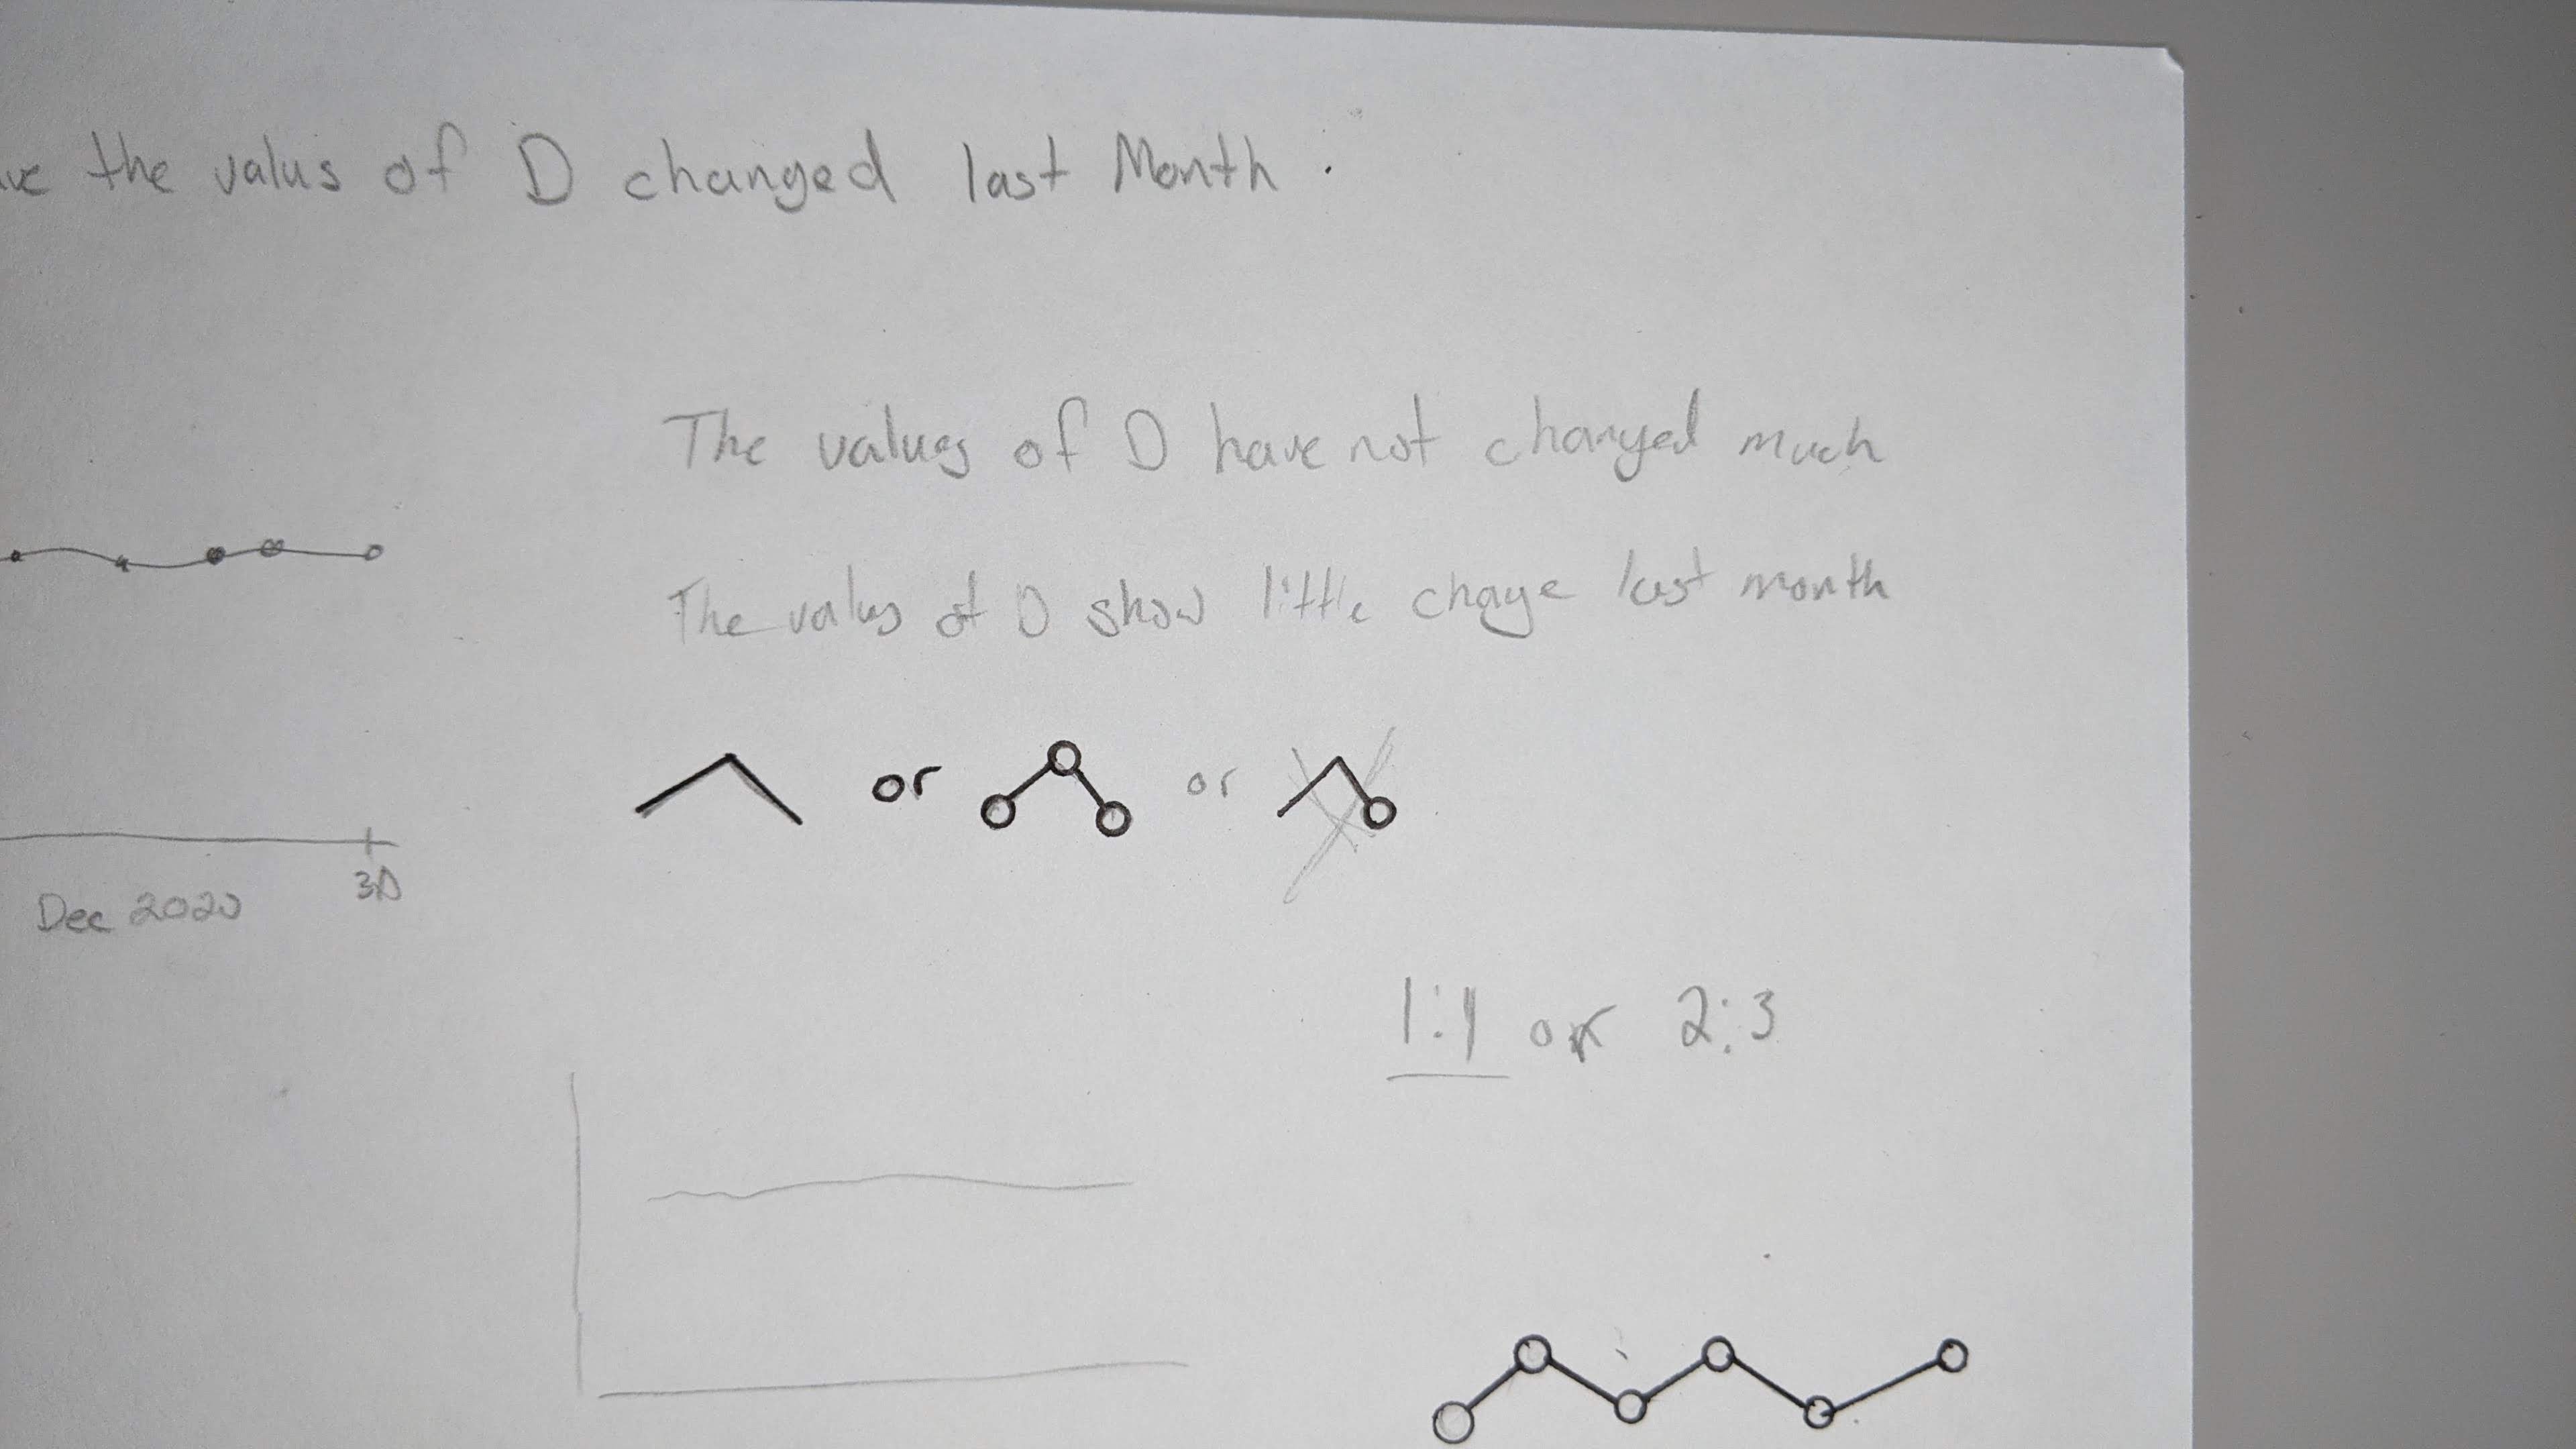 the values of D changed last Month :
The values of D have not changed much
The values of D show little change last month
or or
30
Dec 2020
1:1 or 2:3